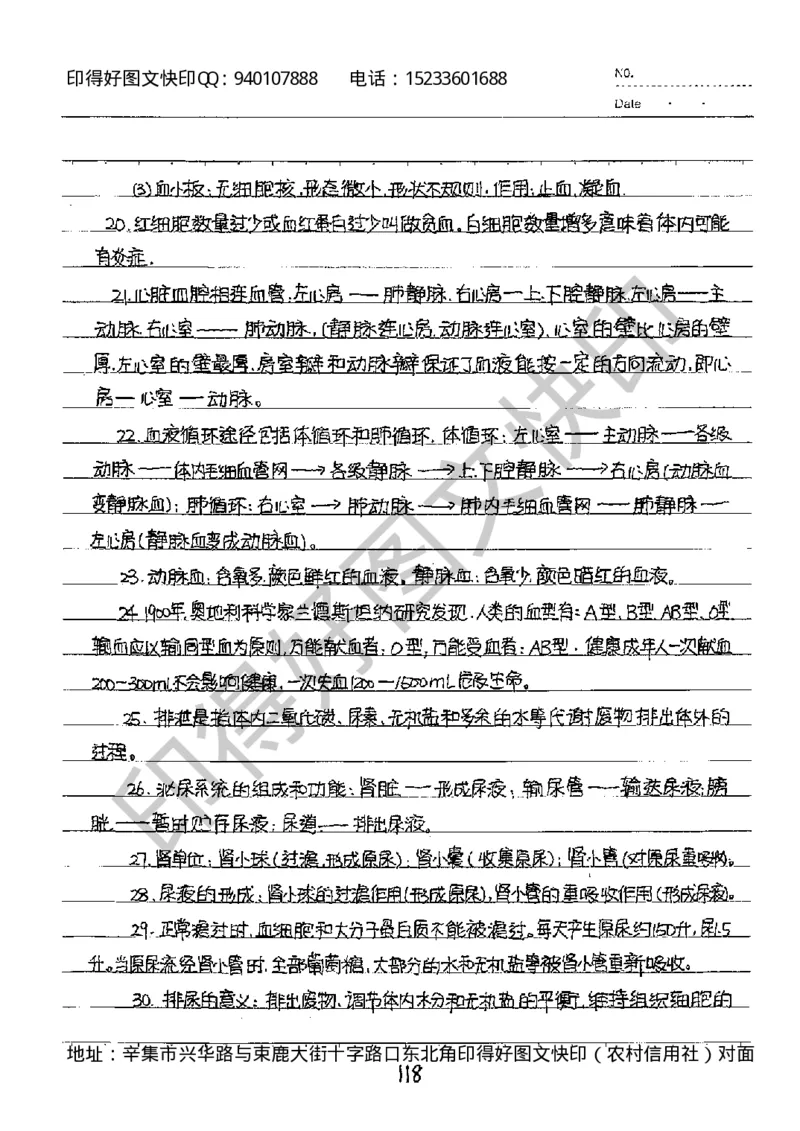 印得好图文快印QQ：940107888 电话：15233601688
NO.
Date
(3)血小板：无细胞核，形态微小，形状不规则．作用：止血，凝血．
20．红细胞数量过少或血红蛋白过少叫做贫血。白细胞数量增多意味着体内可能
有炎症．
21．心脏四腔相连血管．左心房——肺静脉．右心房—上．下腔静脉．左心房——主
动脉．右心室——肺动脉，(静脉连心房，动脉连心室)．心室的壁比心房的壁
厚．左心室的壁最厚．房室瓣和动脉瓣保证了血液能按一定的方向流动，即心
房—心室—动脉。
22．血液循环途径包括体循环和肺循环．体循环：左心室——主动脉——各级
动脉——体内毛细血管网→各级静脉→上、下腔静脉→右心房(动脉血
变静脉血)；肺循环：右心室→肺动脉→肺内毛细血管网——肺静脉——
左心房(静脉血变成动脉血)。
23．动脉血：含氧多，颜色鲜红的血液。静脉血：含氧少，颜色暗红的血液。
24．1900年，奥地利科学家兰德斯坦纳研究发现．人类的血型有：A型，B型，AB型，O型
输血应以输同型血为原则，万能献血者：O型，万能受血者：AB型．健康成年人一次献血
200~300mL不会影响健康，一次失血1200—1500mL危及生命。
25．排泄是指体内二氧化碳、尿素、无机盐和多余的水等代谢废物排出体外的
过程。
26．泌尿系统的组成和功能：肾脏——形成尿液；输尿管——输送尿液；膀
胱——暂时贮存尿液；尿道——排出尿液。
27．肾单位：肾小球(过滤，形成原尿)；肾小囊(收集原尿)；肾小管(对原尿重吸收)。
28．尿液的形成：肾小球的过滤作用(形成原尿)，肾小管的重吸收作用(形成尿液)。
29．正常滤过时，血细胞和大分子蛋白质不能被滤过。每天产生原尿约150升，尿1.5
升。当原尿流经肾小管时，全部葡萄糖，大部分的水和无机盐等被肾小管重新吸收。
30．排尿的意义：排出废物、调节体内水分和无机盐的平衡，维持组织细胞的
印得好图文快印
地址：辛集市兴华路与束鹿大街十字路口东北角印得好图文快印（农村信用社）对面
118